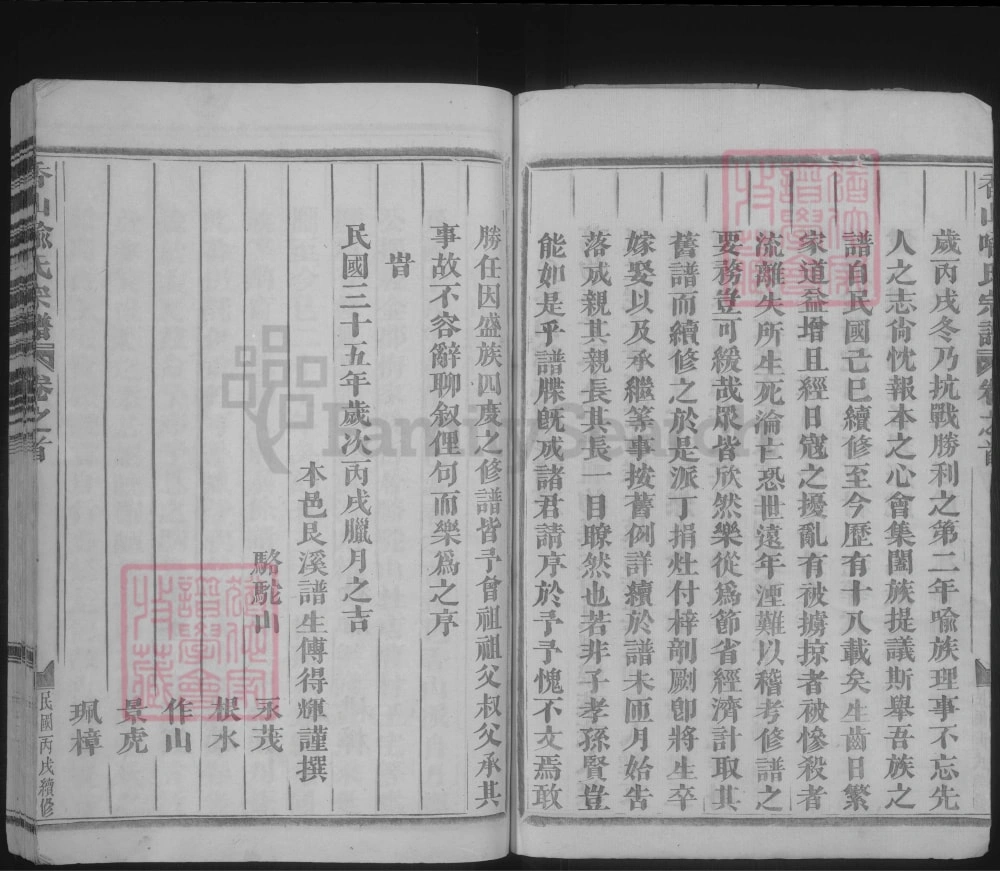 香山喻氏宗譜 卷之首
歲丙戌冬乃抗戰勝利之第二年喻族理事不忘先
人之志尙忱報本之心會集闔族提議斯舉吾族之
譜自民國己巳續修至今歷有十八載矣生齒日繁
家道益增且經日寇之擾亂有被擄掠者被慘殺者
流離失所生死淪亡恐世遠年湮難以稽考修譜之
要務豈可緩哉眾皆欣然樂從爲節省經濟計取其
舊譜而續修之於是派丁捐灶付梓剞劂卽將生卒
嫁娶以及承繼等事按舊例詳續於譜未匝月始吿
落成親其親長其長一目瞭然也若非子孝孫賢豈
能如是乎譜牒旣成諸君請序於予予愧不文焉敢
勝任因盛族四度之修譜皆予曾祖祖父叔父承其
事故不容辭聊叙俚句而樂爲之序
旹
民國三十五年歲次丙戌臘月之吉
本邑艮溪譜生傅得輝謹撰
駱駝山
永茂
根水
作山
景虎
珮樟
香山喻氏宗譜 卷之首
民國丙戌續修
FamilySearch